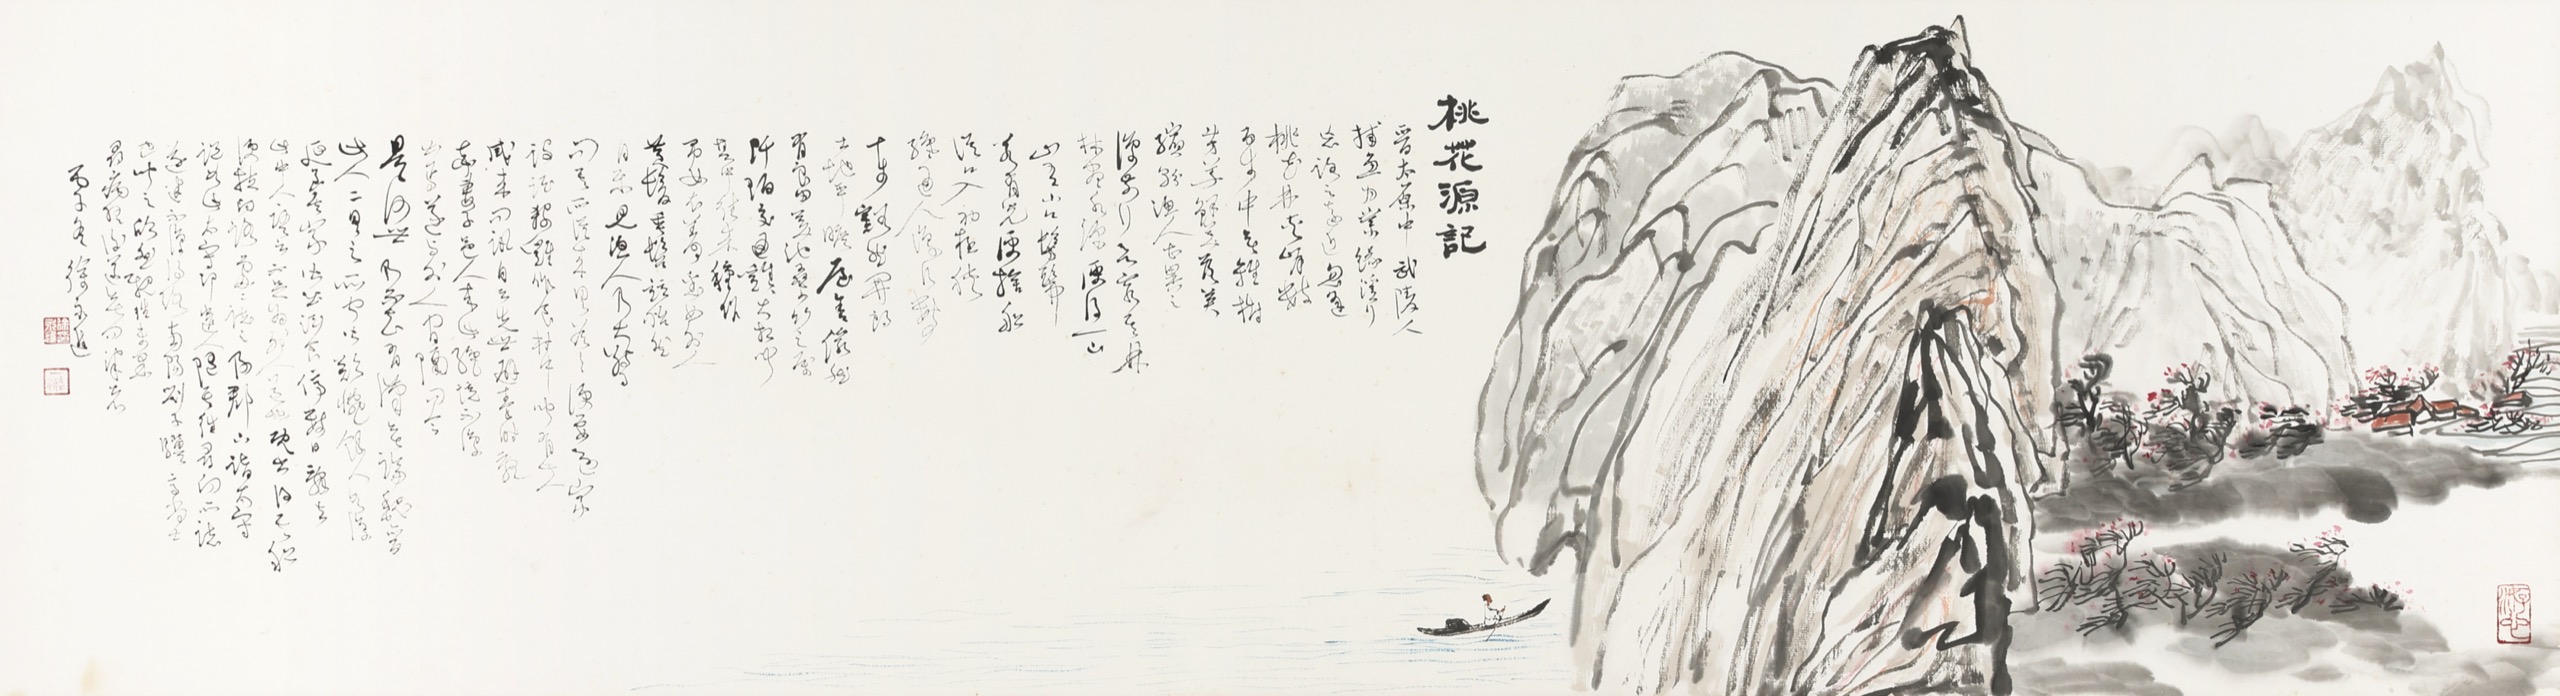 桃花源記
晉太原中武陵人
捕魚為業緣溪行
忘路之遠近忽逢
桃花林夾岸數
百步中無雜樹
芳草鮮美落英
繽紛漁人甚異之
復前行欲窮其林
林盡水源便得一山
山有小口髣髴
若有光便捨船
從口入初極狹
纔通人復行數
十步豁然開朗
土地平曠屋舍儼然
有良田美池桑竹之屬
阡陌交通雞犬相聞
其中往來種作
男女衣著悉如外人
黃髮垂髫並怡然
自樂見漁人乃大驚
問其所從來具答之便要還家
設酒殺雞作食村中聞有此人
咸來問訊自云先世避秦時亂
率妻子邑人來此絕境不復
出焉遂與外人間隔問今
是何世乃不知有漢無論魏晉
此人一一具言所聞皆歎惋餘人各復
延至其家皆出酒食停數日辭去
此中人語云不足為外人道也既出得其船
便扶向路處處誌之及郡下詣太守
說如此太守即遣人隨其往尋向所誌
遂迷不復得路南陽劉子驥高尚士
也聞之欣然規往未果
尋病終後遂無問津者
丙子冬 徐永進